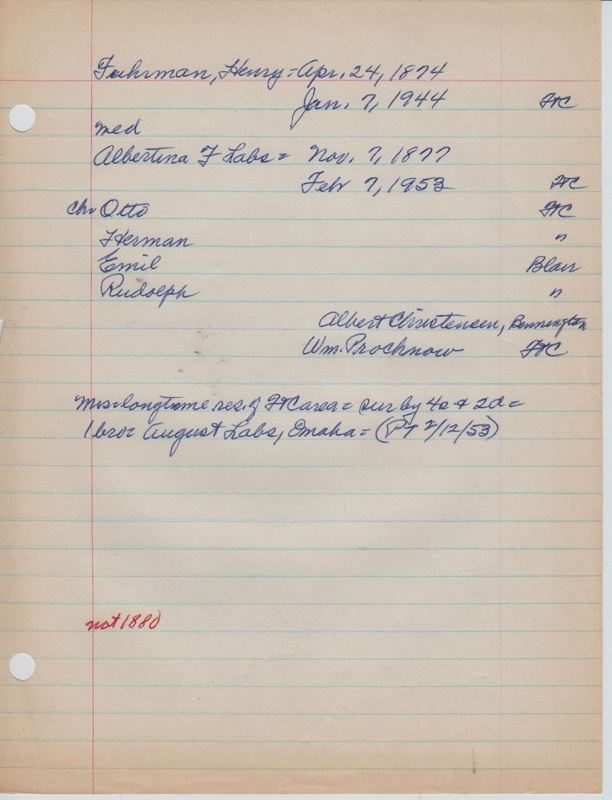 Fuhrman, Henry = Apr. 24, 1874
Jan. 7, 1944 FtC
med
Albertina F Labs = Nov. 7, 1877
Feb 7, 1953 FtC
ch: Otto FtC
Herman "
Emil Blair
Rudolph "
Albert Christensen, Bennington
Wm. Prochnow FtC
Mrs = longtome res. of FtC area = sur by 4s & 2d =
1 bro: August Labs, Omaha = (PT 2/12/53)
not 1880